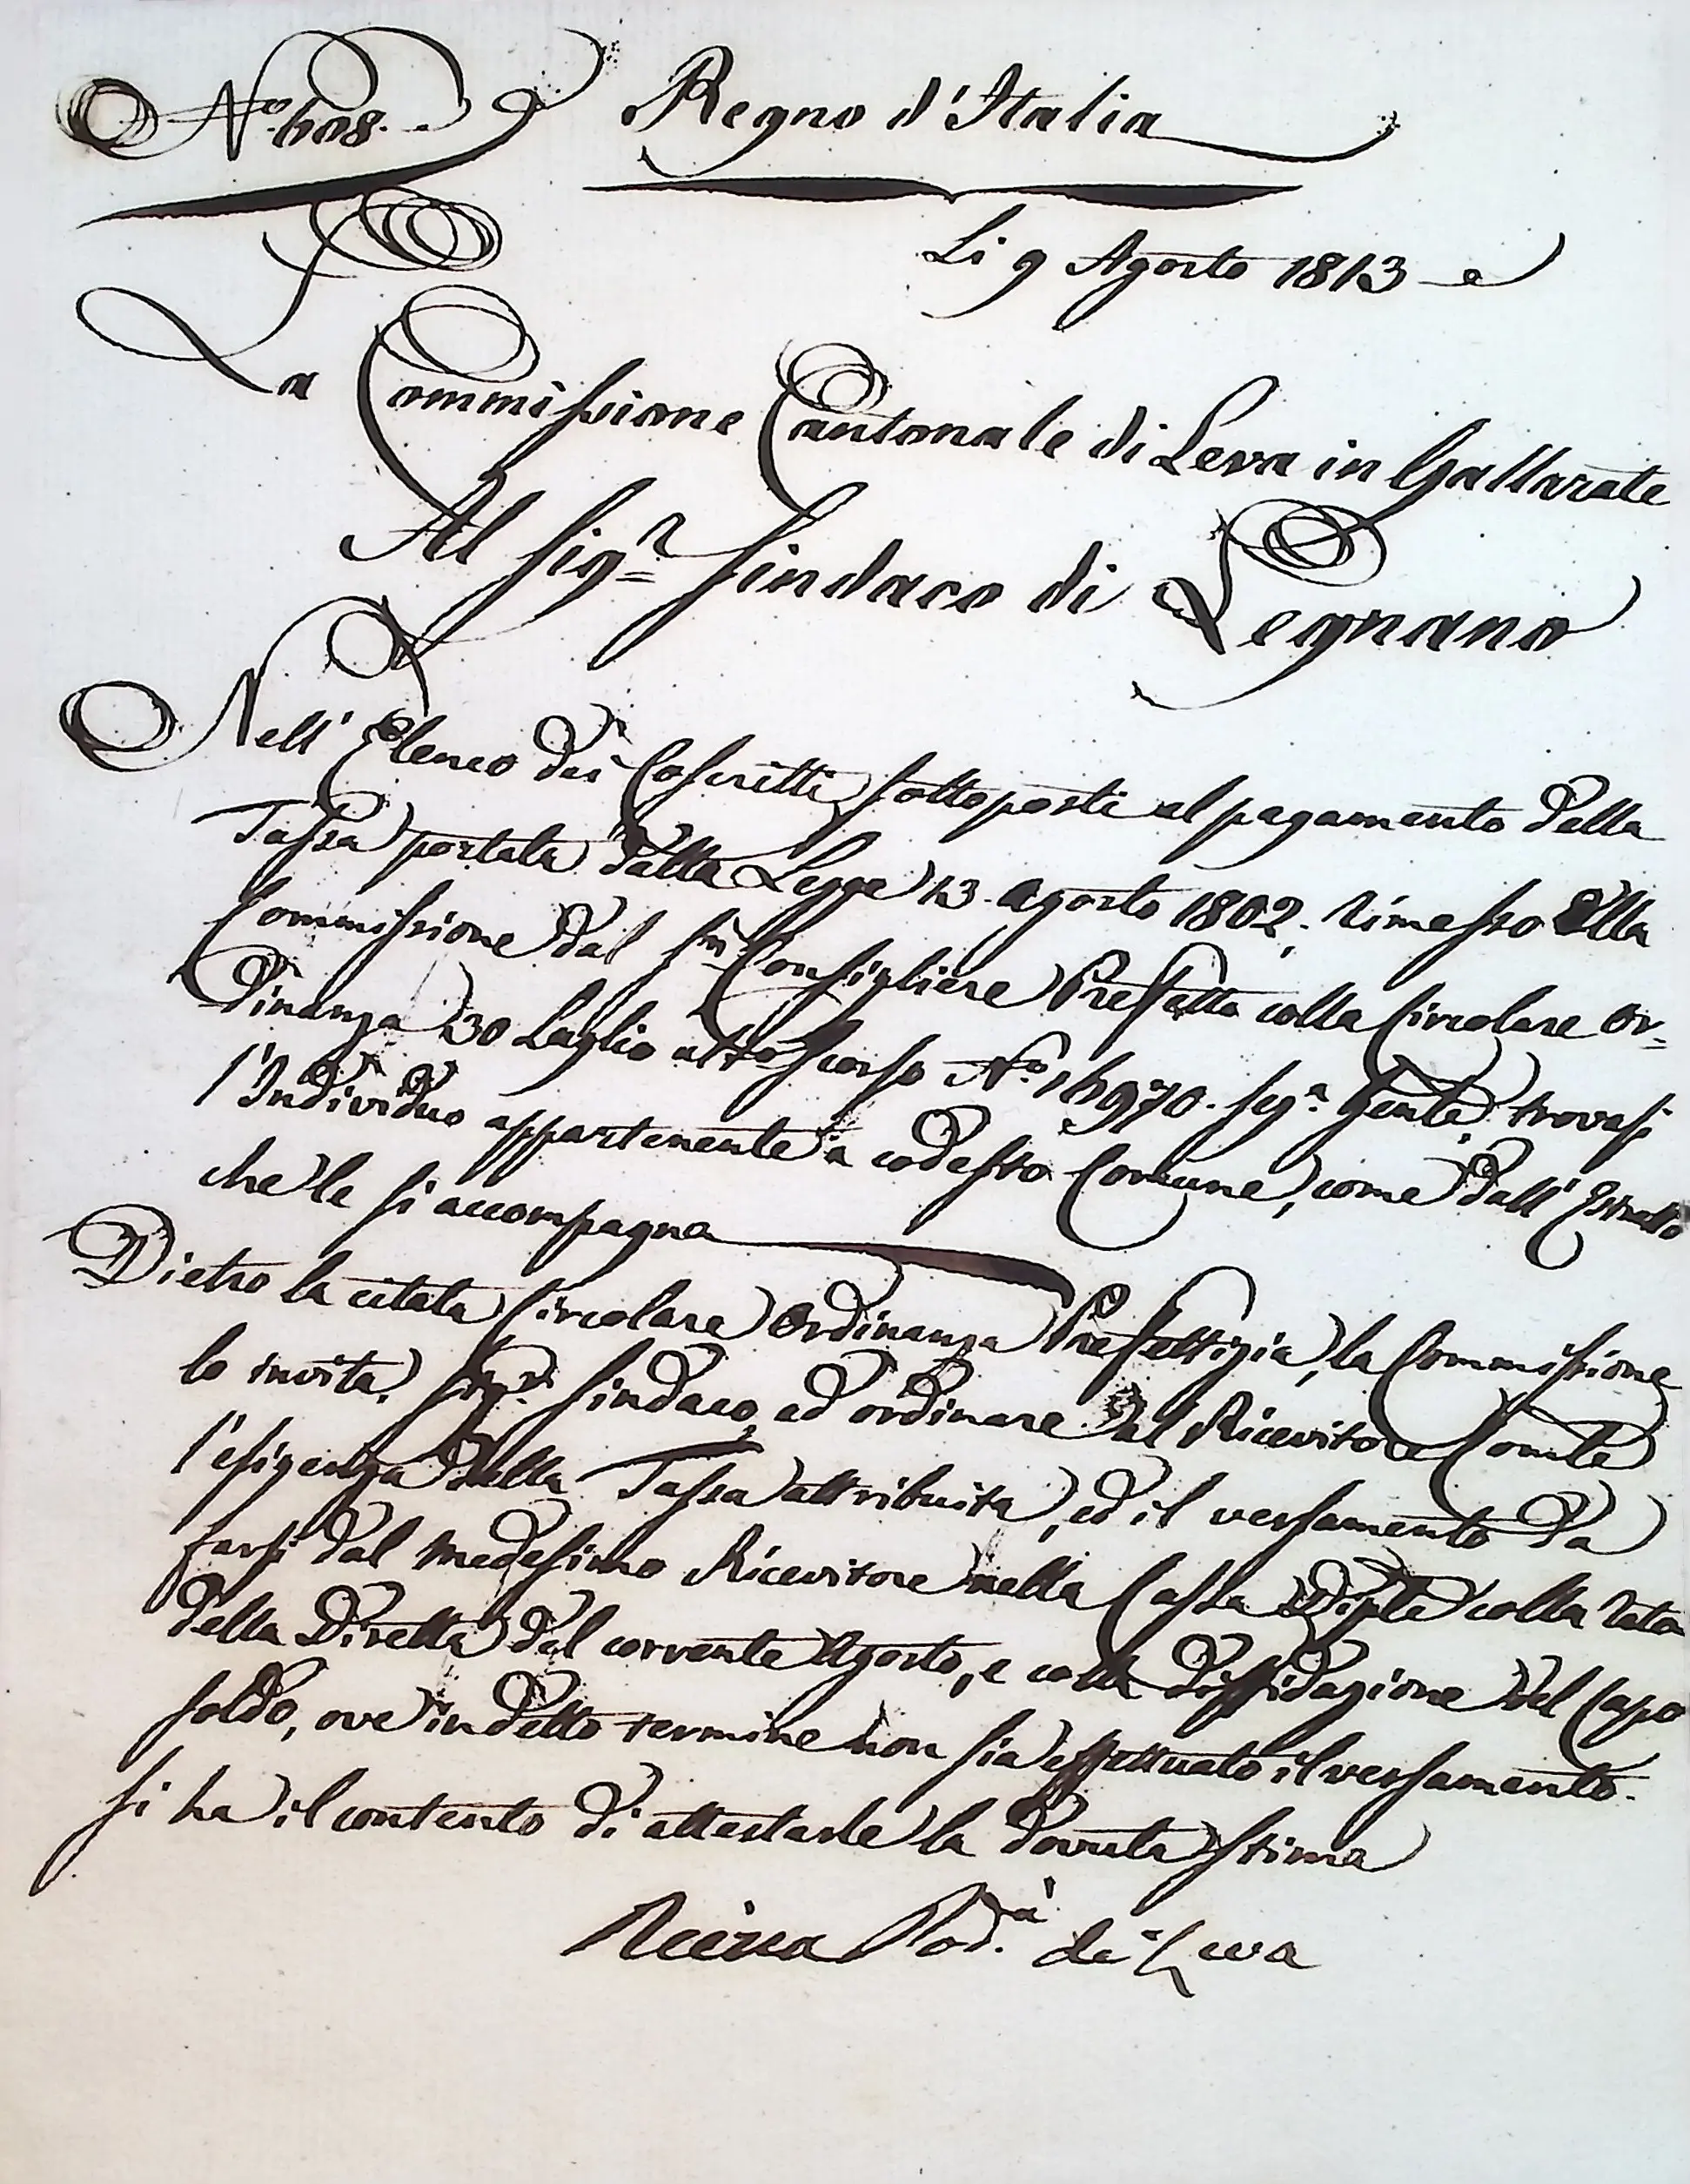 N.º 608. Regno d'Italia
Li 9 Agosto 1813
La Commissione Cantonale di Leva in Gallarate
Al Sig.r Sindaco di Legnano
Nell' Elenco dei Coscritti sottoposti al pagamento della
Tassa portata dalla Legge 13. Agosto 1802. rimesso alla
Commissione dal Sr. Consigliere Prefetto colla Circolare Or=
dinanza 30 Luglio scorso N.º 16970. trovasi
l'Individuo appartenente a codesto Comune, come dall' Estratto
che le si accompagna
Dietro la citata Circolare Ordinanza Prefettizia, la Commissione
lo invita, Sig.r Sindaco, ad ordinare al Ricevitore Comle
l'esigenza della Tassa attribuita, ed il versamento da
farsi dal medesimo Ricevitore nella Cassa Diple colla rata
della Diretta del corrente Agosto, e colla diffidazione del Capo
soldo, ove in detto termine non sia effettuato il versamento.
Si ha il contento di attestarle la dovuta stima
di Leva